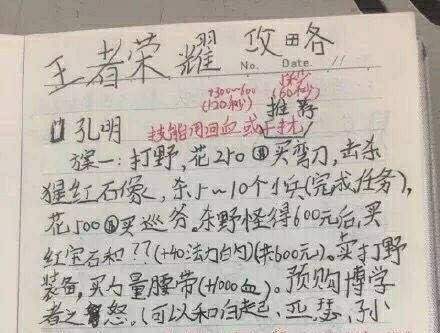 王者荣耀攻略
No.  Date  11.
+300~600
(120秒)
(60秒)
推荐
孔明 技能用回血或干扰
方案一：打野，花250买弯刀，击杀
猩红石像，杀5~10个小兵(完成任务)，
花500买巡务。杀野怪得600元后，买
红宝石和??(+40法力白闪)(共600元)。卖打野
装备，买力量腰带(+1000血)。预购博学
者之怒。(可以和白起、亚瑟、孙